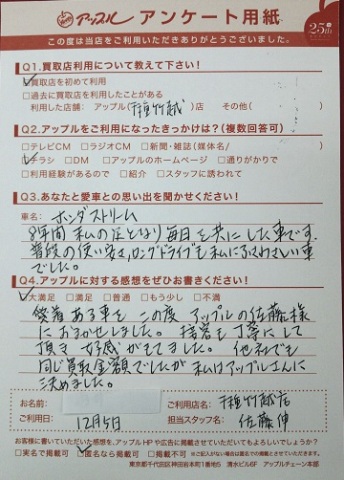 アップル アンケート用紙 25th
この度は当店をご利用いただきありがとうございました。
Q1.買取店利用について教えて下さい!
☑買取店を初めて利用
□過去に買取店を利用したことがある
利用した店舗: アップル(千種竹越)店 その他( )
Q2.アップルをご利用になったきっかけは?(複数回答可)
□テレビCM □ラジオCM □新聞・雑誌(媒体名/ )
☑チラシ □DM □アップルのホームページ □通りがかりで
□利用経験があるので □紹介 □スタッフに誘われて
Q3.あなたと愛車との思い出を聞かせください!
車名: ホンダストリーム
8年間 私の足となり毎日を共にした車です。
普段の使い安さ、ロングドライブも私にふさわしい車
でした。
Q4.アップルに対する感想をぜひお書きください!
☑大満足 □満足 □普通 □もう少し □不満
愛着ある車を この度 アップルの佐藤様
におまかせしました。接客も丁寧にして
頂き 好感がもてました。他社でも
同じ買取金額でしたが 私はアップルさんに
決めました。
お名前: ご利用店名: 千種竹越店
ご利用日: 12月5日 担当スタッフ名: 佐藤 伸
お客様に書いていただいた感想を、アップルHPや広告に掲載させていただいてもよろしいでしょうか?
□実名で掲載可 ☑匿名なら掲載可 □掲載不可 ※ご記入がない場合は匿名での掲載とさせていただきます。
東京都千代田区神田岩本町1番地5 清水ビル6F アップルチェーン本部